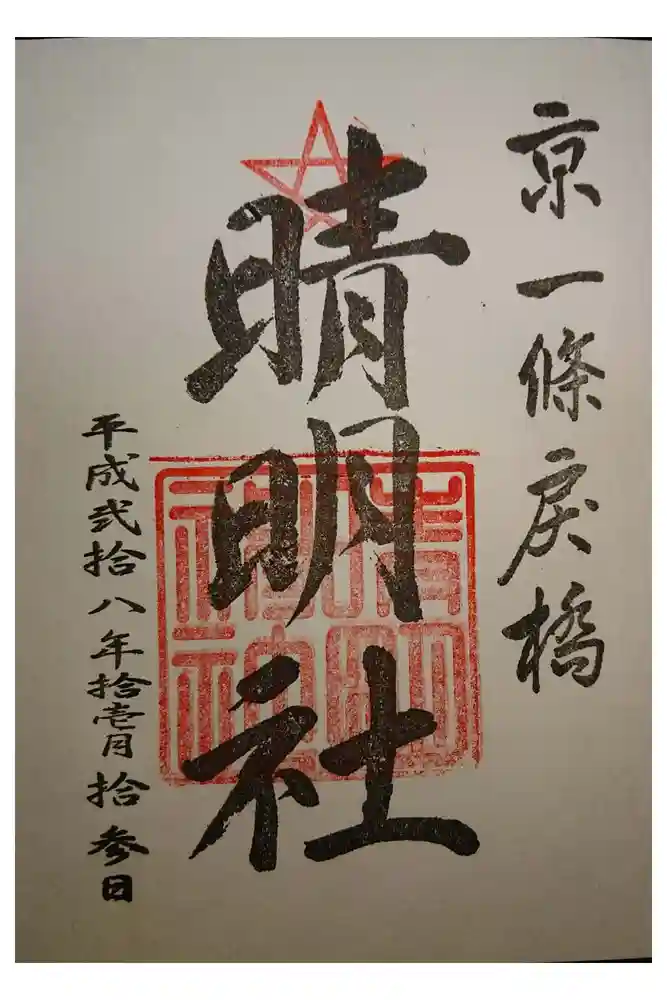 京一條戻橋
晴明社
平成弐拾八年拾壱月拾参日